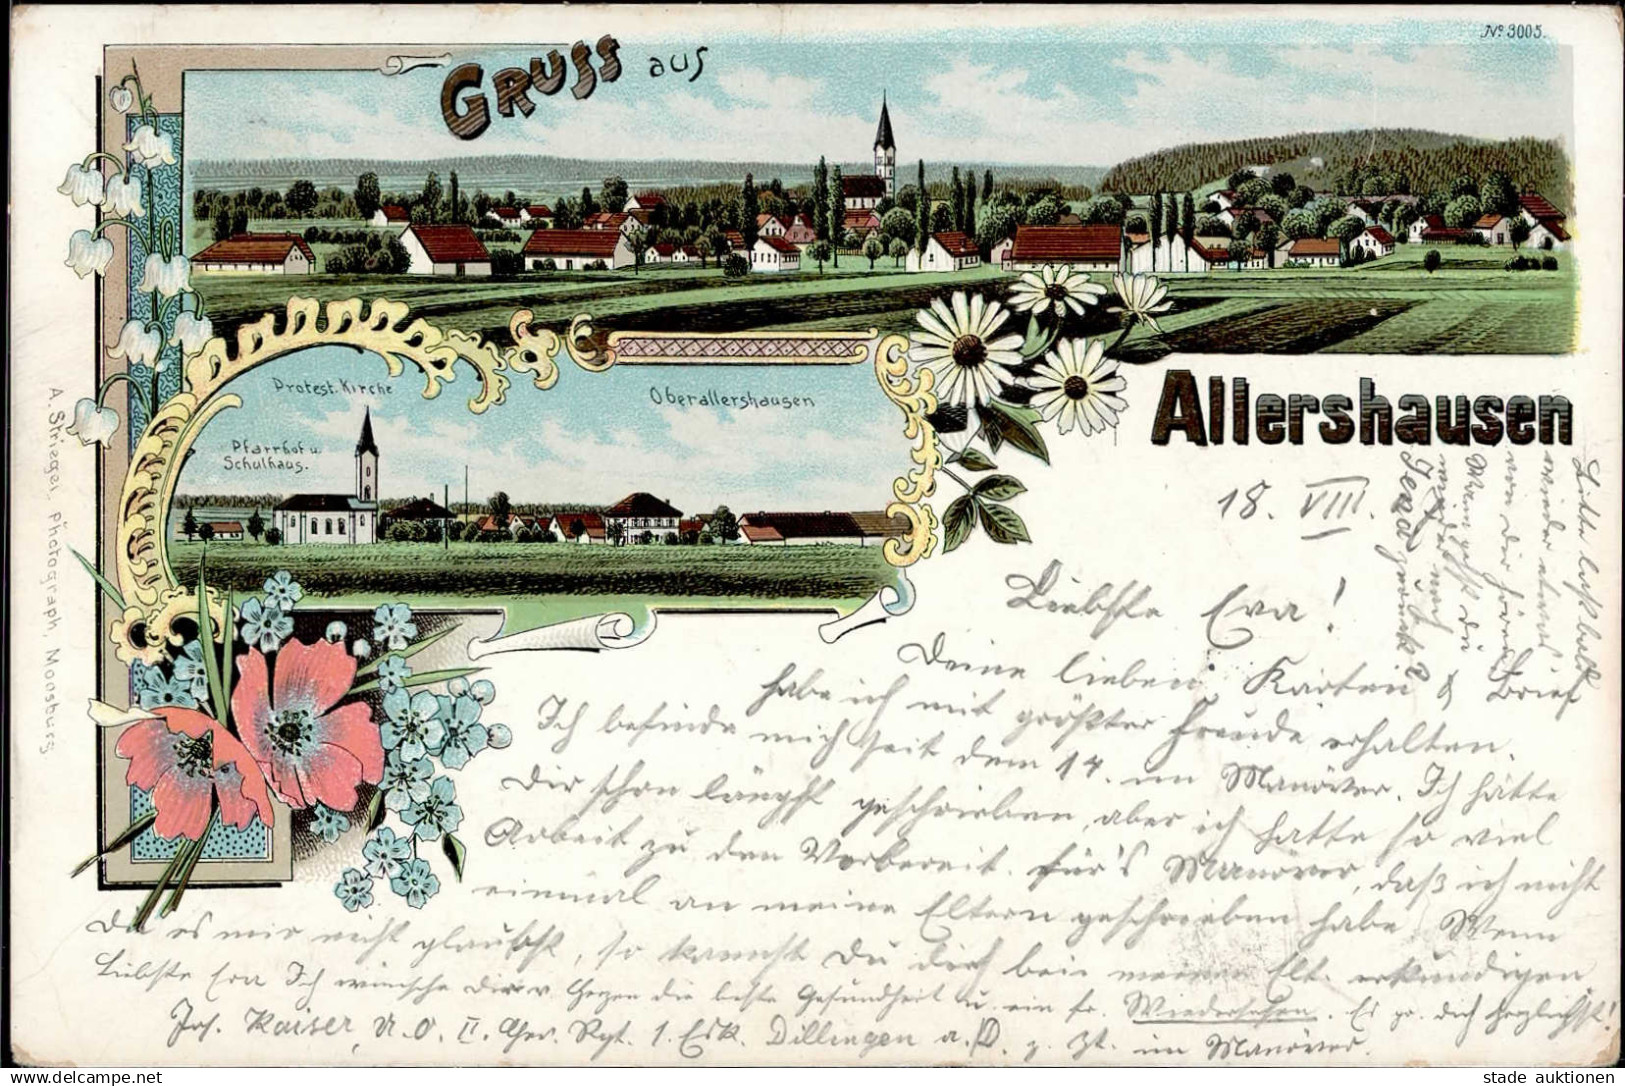 Nº 3005.
GRUSS aus
Allershausen
Protest. Kirche
Pfarrhof u.
Schulhaus.
Oberallershausen
A. Striegel, Photograph, Moosburg.
18. VIII.
Liebste Eva!
Deine lieben Karten & Brief
habe ich mit größter Freude erhalten.
Ich befinde mich seit dem 14. im Manöver. Ich hätte
Dir schon längst geschrieben, aber ich hatte so viel
Arbeit zu den Vorbereit. für's Manöver, daß ich nicht
einmal an meine Eltern geschrieben habe. Wenn
Du es mir nicht glaubst, so kannst Du Dich bei meinen Elt. erkundigen.
Liebste Eva Ich wünsche Dir v. Herzen die beste Gesundheit u. ein fr. Wiedersehen. Es gr. dich herzlichst!
Jos. Kaiser, U. O. II. Chev. Rgt. 1. Esk. Dillingen a. D. z. Zt. im Manöver.
Bitte laß bald
wieder etwas
von dir hören
Wann gehst du
wieder nach
zurück?
stade auktionen
www.delcampe.net